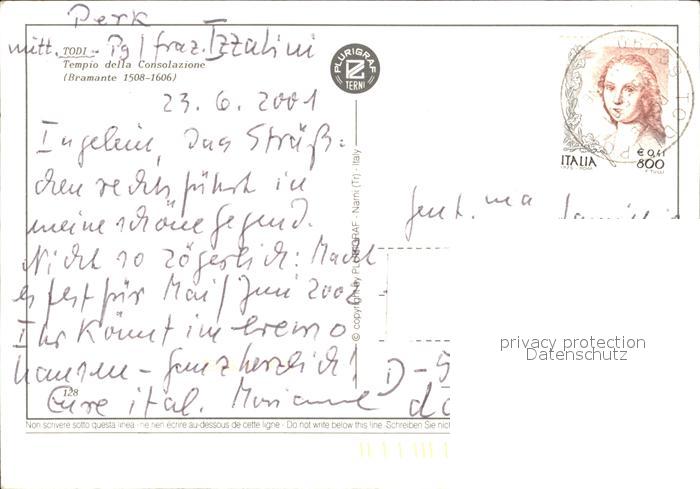 Perk
mitt. TODI - Pg / fraz. Izzalini
Tempio della Consolazione
(Bramante 1508-1606)
23. 6. 2001
Ingelein, das Sträß=
chen rechts führt in
meine schöne Gegend.
Nicht so zögerlich: Macht
es fest für Mai/Juni 2002
Ihr könnt im eremo
hausen - ganz herzlich!
Eure ital. Marianne
128
PLURIGRAF
TERNI
© copyright by PLURIGRAF - Narni (Tr) - Italy
ITALIA
€ 0,41
800
Gent.ma
D-5
privacy protection
Datenschutz
Non scrivere sotto questa linea - ne rien écrire au-dessous de cette ligne - Do not write below this line. Schreiben Sie nicht